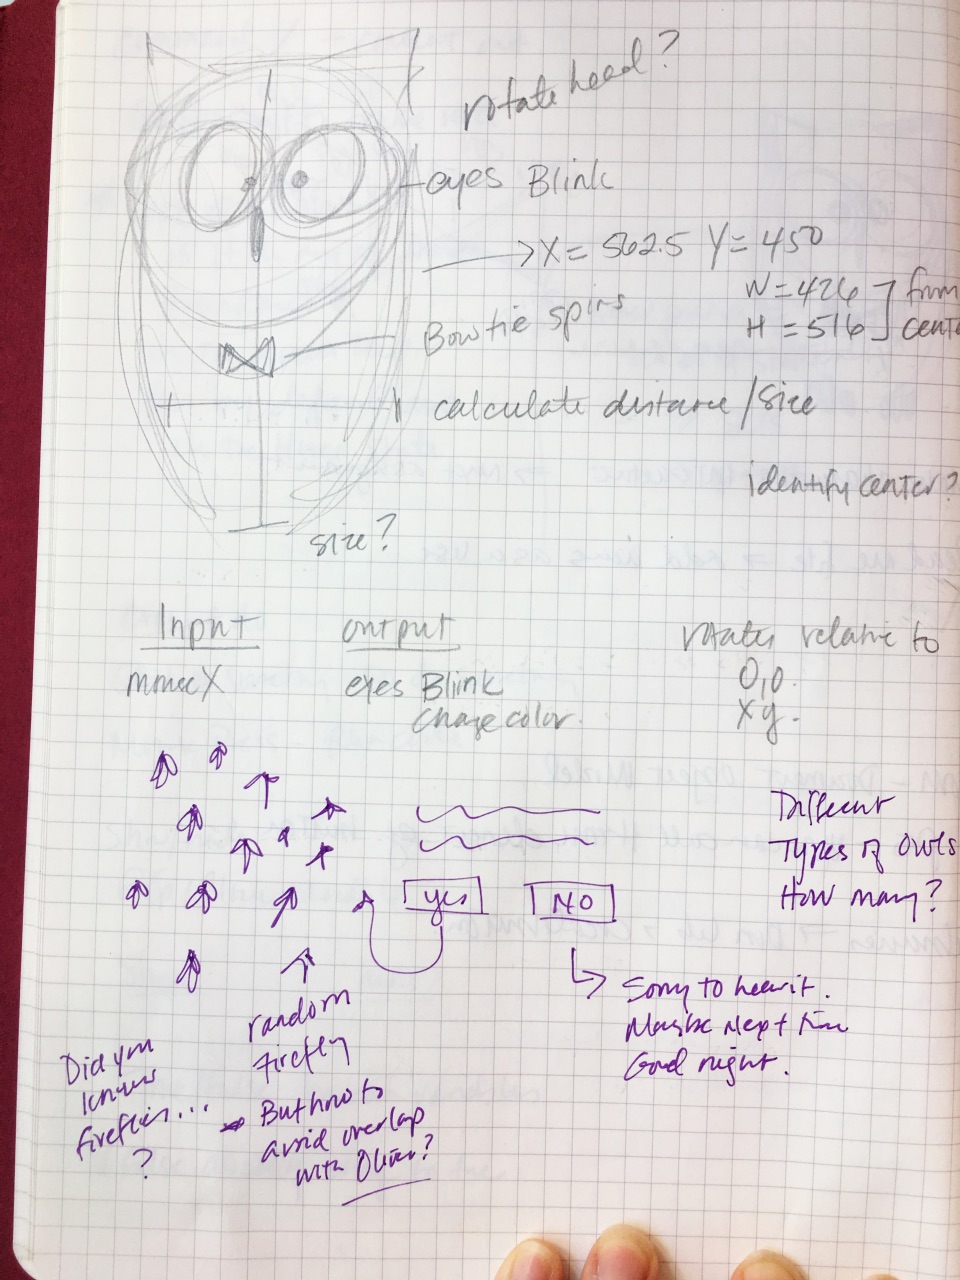 rotate head?
eyes Blink
X = 562.5 Y = 450
W = 426
H = 516
from
cente
Bowtie spins
calculate distance / size
identify center?
size?
Input
output
mouseX
eyes Blink
change color.
rotates relative to
0,0.
x y.
Different
Types of Owls
How many?
yes
NO
Sorry to hear it.
Maybe Next time
Good night.
random
firefly
But how to
avoid overlap
with Oliver?
Did you
know
fireflies...
?